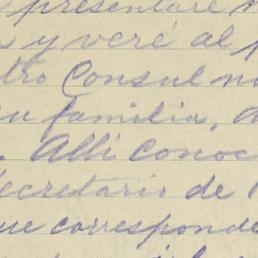 presentaré
y veré al
tro Consul no
su familia,
. Alli conoc
Secretario de
que corresponde